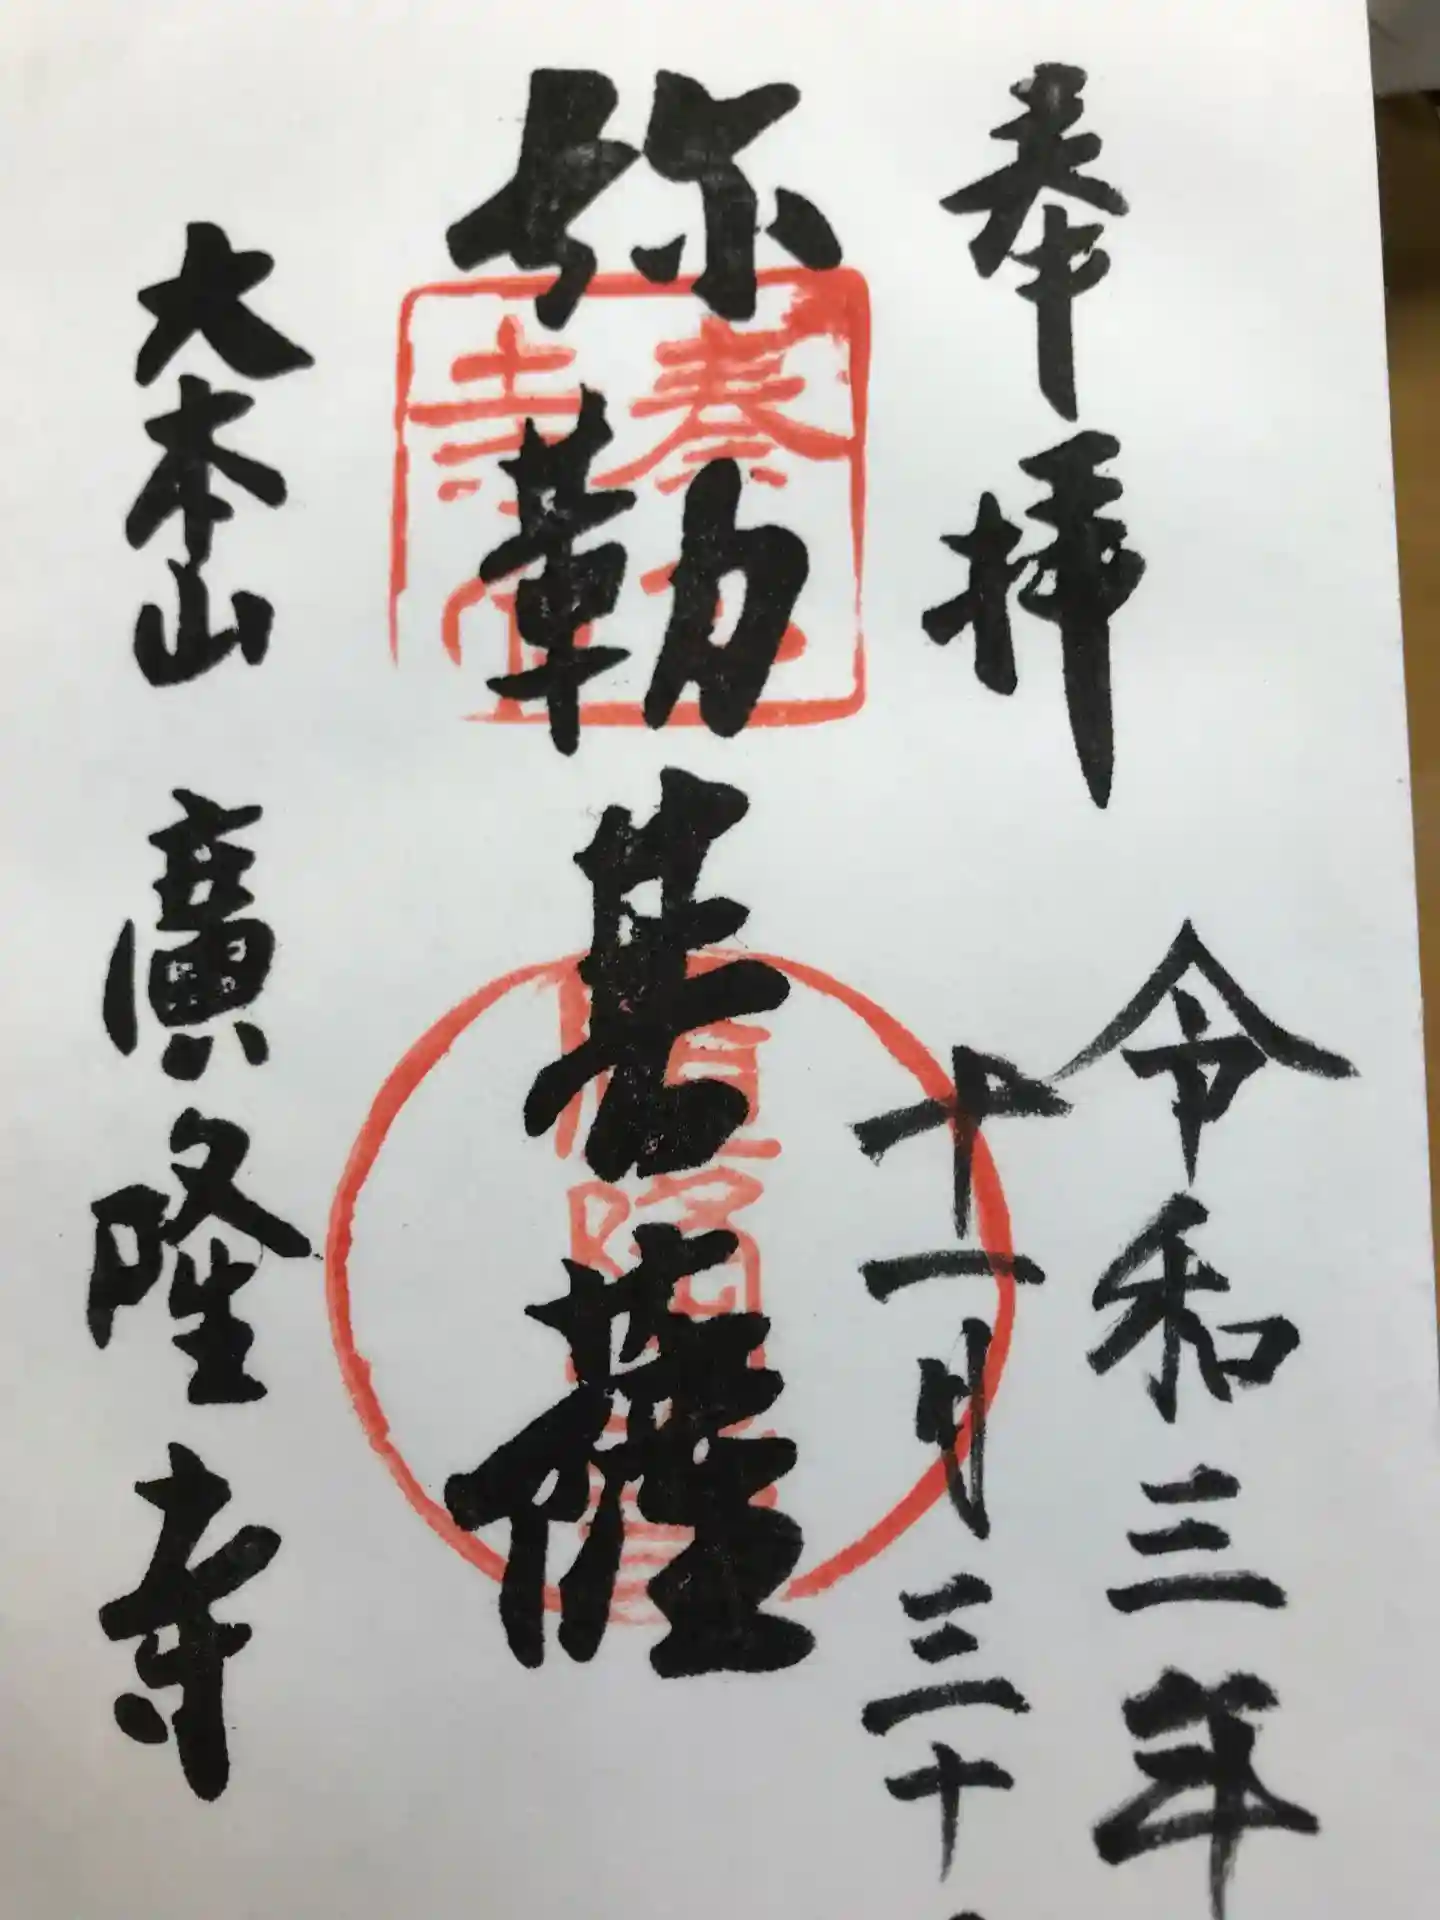 奉拝
令和三年
十一月三十
弥勒菩薩
大本山 廣隆寺